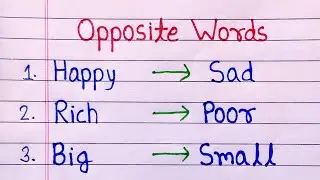 Opposite Words
1. Happy → Sad
2. Rich → Poor
3. Big → Small